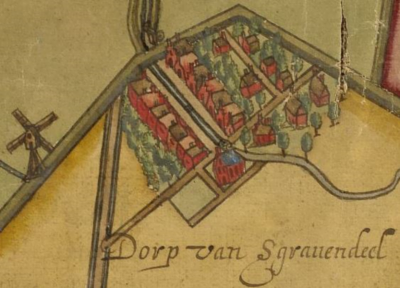 Dorp van Sgrauendeel